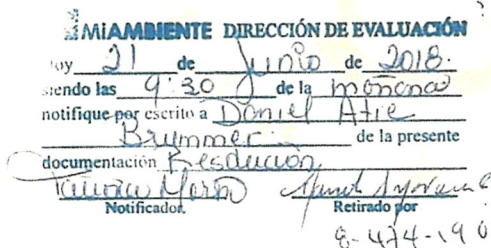 MiAMBIENTE DIRECCIÓN DE EVALUACIÓN
oy 21 de Junio de 2018.
siendo las 9:30 de la mañana
notifique por escrito a Daniel Atie
Brummer de la presente
documentación Resolución
Notificador Retirado por
8-474-190